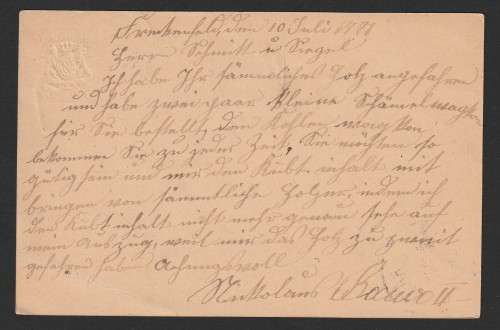 Freckenfeld, den 10 Juli 1891
Herrn Schmitt u Siegel
Ich habe Ihr sämmtliches Holz angefahren
und habe zwei paar kleine Schämel
für Sie bestellt, den Kohlen
bekommen Sie zu jeder Zeit, Sie möchten so
gütig sein um mir den Kubikinhalt mit
bringen von sämmtliche Holzer, indem ich
den Kubikinhalt nicht mehr genau sehe auf
mein Auszug, weil mir das Holz zu
gefahren haben Achungsvoll
Nikolaus II